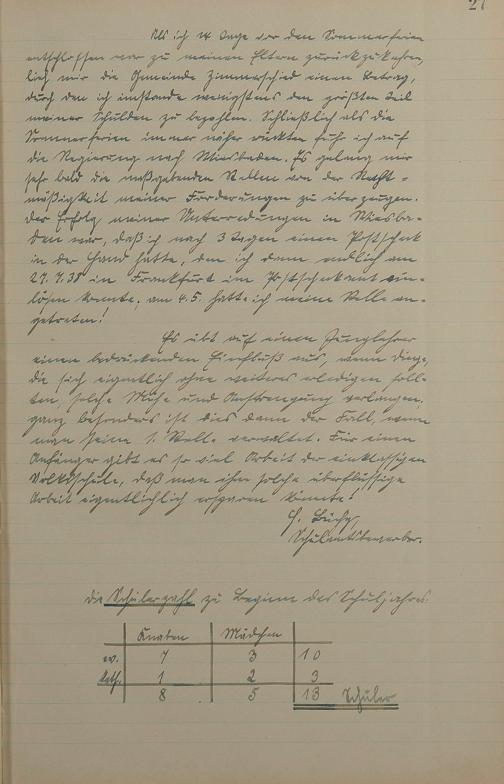 27
Als ich 14 Tage vor den Sommerferien
entschlossen war zu meinen Eltern zurückzukehren,
lieh mir die Gemeinde Zimmerschied einen Betrag,
durch den ich imstande wenigstens den größten Teil
meiner Schulden zu bezahlen. Schließlich als die
Sommerferien immer näher rückten fuhr ich auf
die Regierung nach Wiesbaden. Es gelang mir
sehr bald die maßgebenden Stellen von der Recht-
mäßigkeit meiner Forderungen zu überzeugen.
Der Erfolg meiner Unterredungen in Wiesba-
den war, daß ich nach 3 Tagen einen Postscheck
in der Hand hatte, den ich dann endlich am
27.7.38 in Frankfurt im Postscheckamt ein-
lösen konnte; am 4.5. hatte ich meine Stelle an-
getreten!
Es übt auf einen Junglehrer
einen bedrückenden Einfluß aus, wenn Dinge,
die sich eigentlich ohne weiteres erledigen soll-
ten, solche Mühe und Anstrengung verlangen,
ganz besonders ist dies dann der Fall, wenn
man seine 1. Stelle verwaltet. Für einen
Anfänger gibt es so viel Arbeit der einklassigen
Volksschule, daß man ihm solche überflüssige
Arbeit eigentlichlich ersparen könnte!
Schulamtsbewerber.
Die Schülerzahl zu Beginn des Schuljahres:
Knaben Mädchen
ev. 7 3 10
kath. 1 2 3
8 5 13 Schüler